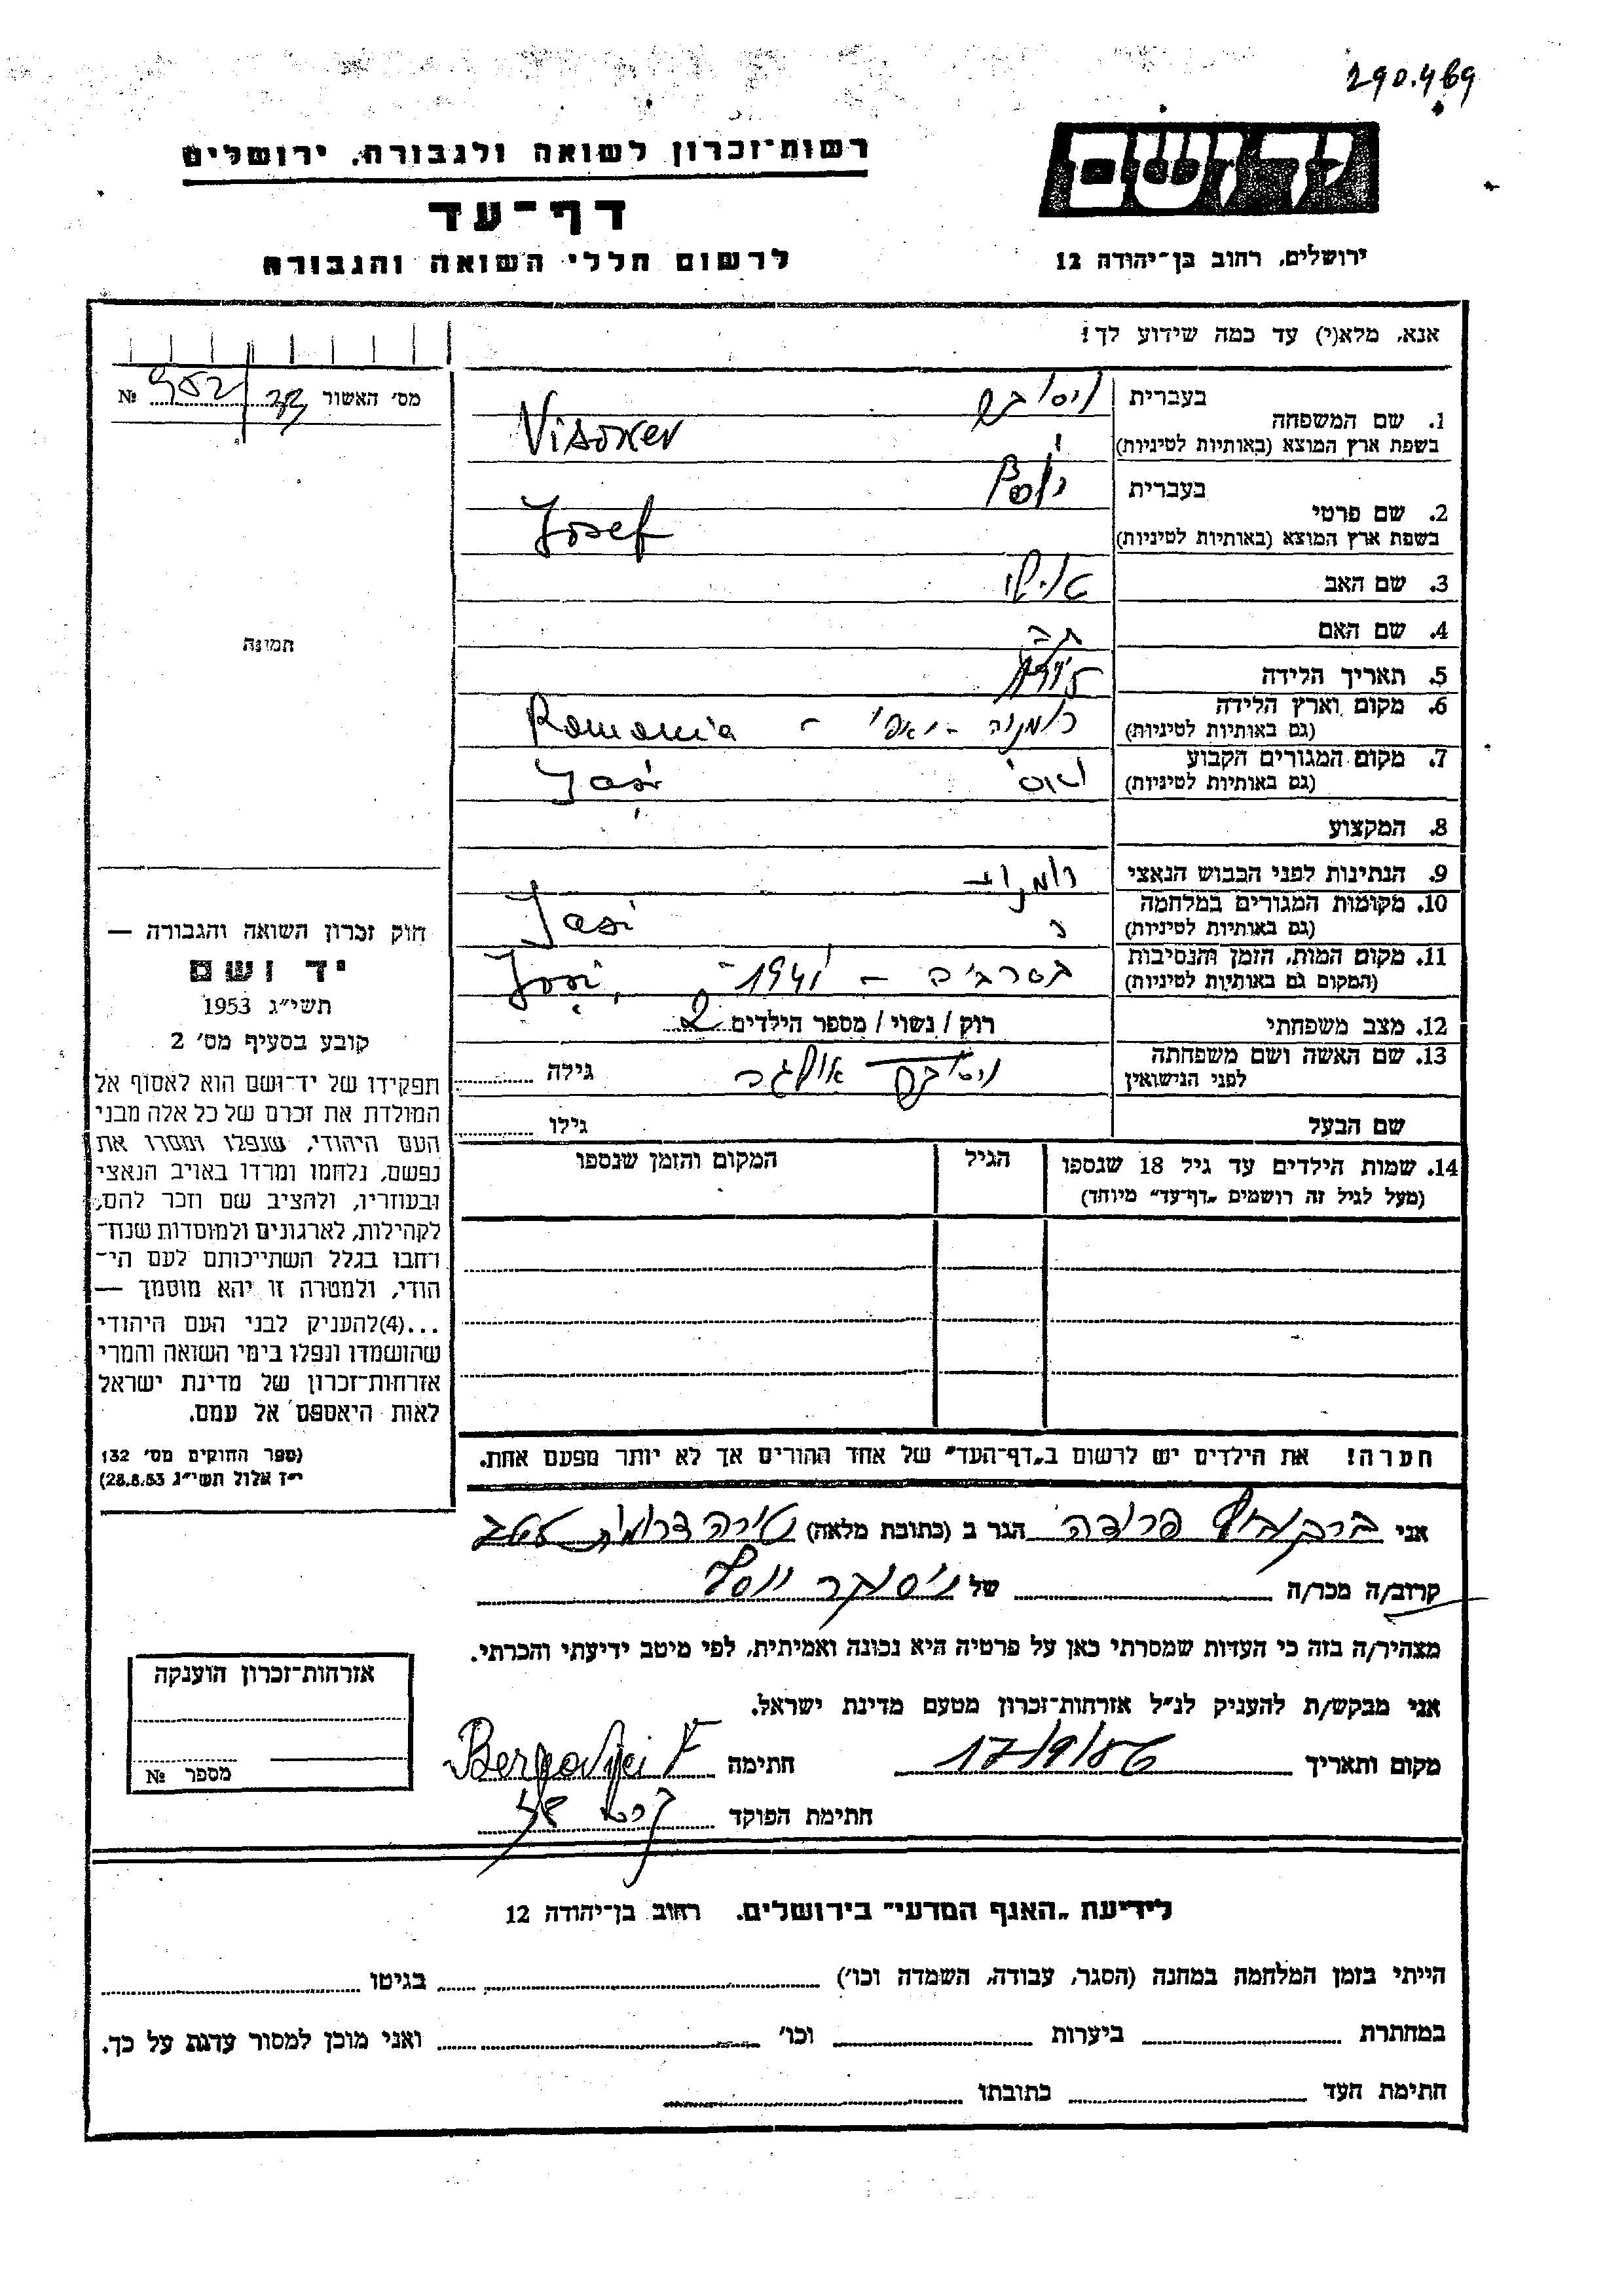 290.469
יד ושם
רשות־זכרון לשואה ולגבורה, ירושלים
דף־עד
לרשום חללי השואה והגבורה
ירושלים, רחוב בן־יהודה 12
אנא, מלא(י) עד כמה שידוע לך!
מס׳ האשור № 952/
1. שם המשפחה
בעברית
בשפת ארץ המוצא (באותיות לטיניות) Visoker
2. שם פרטי
בעברית יוסף
בשפת ארץ המוצא (באותיות לטיניות) Josef
3. שם האב
4. שם האם
5. תאריך הלידה
6. מקום וארץ הלידה
(גם באותיות לטיניות) Romania
7. מקום המגורים הקבוע
(גם באותיות לטיניות) Jasi
8. המקצוע
9. הנתינות לפני הכבוש הנאצי
10. מקומות המגורים במלחמה
(גם באותיות לטיניות) Jasi
11. מקום המות, הזמן והנסיבות
(המקום גם באותיות לטיניות) בסרביה – 1941 – Jasi
12. מצב משפחתי רוק / נשוי / מספר הילדים 2
13. שם האשה ושם משפחתה
לפני הנישואין אולגה גילה
שם הבעל גילו
14. שמות הילדים עד גיל 18 שנספו
(מעל לגיל זה רושמים „דף־עד״ מיוחד)
הגיל
המקום והזמן שנספו
הערה! את הילדים יש לרשום ב„דף־העד״ של אחד ההורים אך לא יותר מפעם אחת.
תמונה
חוק זכרון השואה והגבורה —
יד ושם
תשי״ג 1953
קובע בסעיף מס׳ 2
תפקידו של יד־ושם הוא לאסוף אל
המולדת את זכרם של כל אלה מבני
העם היהודי, שנפלו ומסרו את
נפשם, נלחמו ומרדו באויב הנאצי
ובעוזריו, ולהציב שם וזכר להם,
לקהילות, לארגונים ולמוסדות שנח־
רחבו בגלל השתייכותם לעם הי־
הודי, ולמטרה זו יהא מוסמך —
...(4)להעניק לבני העם היהודי
שהושמדו ונפלו בימי השואה והמרי
אזרחות־זכרון של מדינת ישראל
לאות היאספם אל עמם.
(ספר החוקים מס׳ 132
י״ז אלול תשי״ג 28.8.53)
אני פרידה הגר ב (כתובת מלאה) טירה
קרוב/ה מכר/ה של ויסוקר יוסף
מצהיר/ה בזה כי העדות שמסרתי כאן על פרטיה היא נכונה ואמיתית, לפי מיטב ידיעתי והכרתי.
אני מבקש/ת להעניק לנ״ל אזרחות־זכרון מטעם מדינת ישראל.
מקום ותאריך 17/9/86 חתימה
חתימת הפוקד
אזרחות־זכרון הוענקה
מספר №
לידיעת „האגף המדעי״ בירושלים, רחוב בן־יהודה 12
הייתי בזמן המלחמה במחנה (הסגר, עבודה, השמדה וכו׳) בגיטו
במחתרת ביערות וכו׳ ואני מוכן למסור עדות על כך.
חתימת העד כתובתו